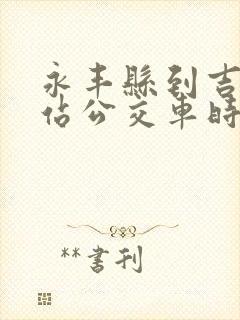 永丰縣到吉
佔公交車時
**書刊